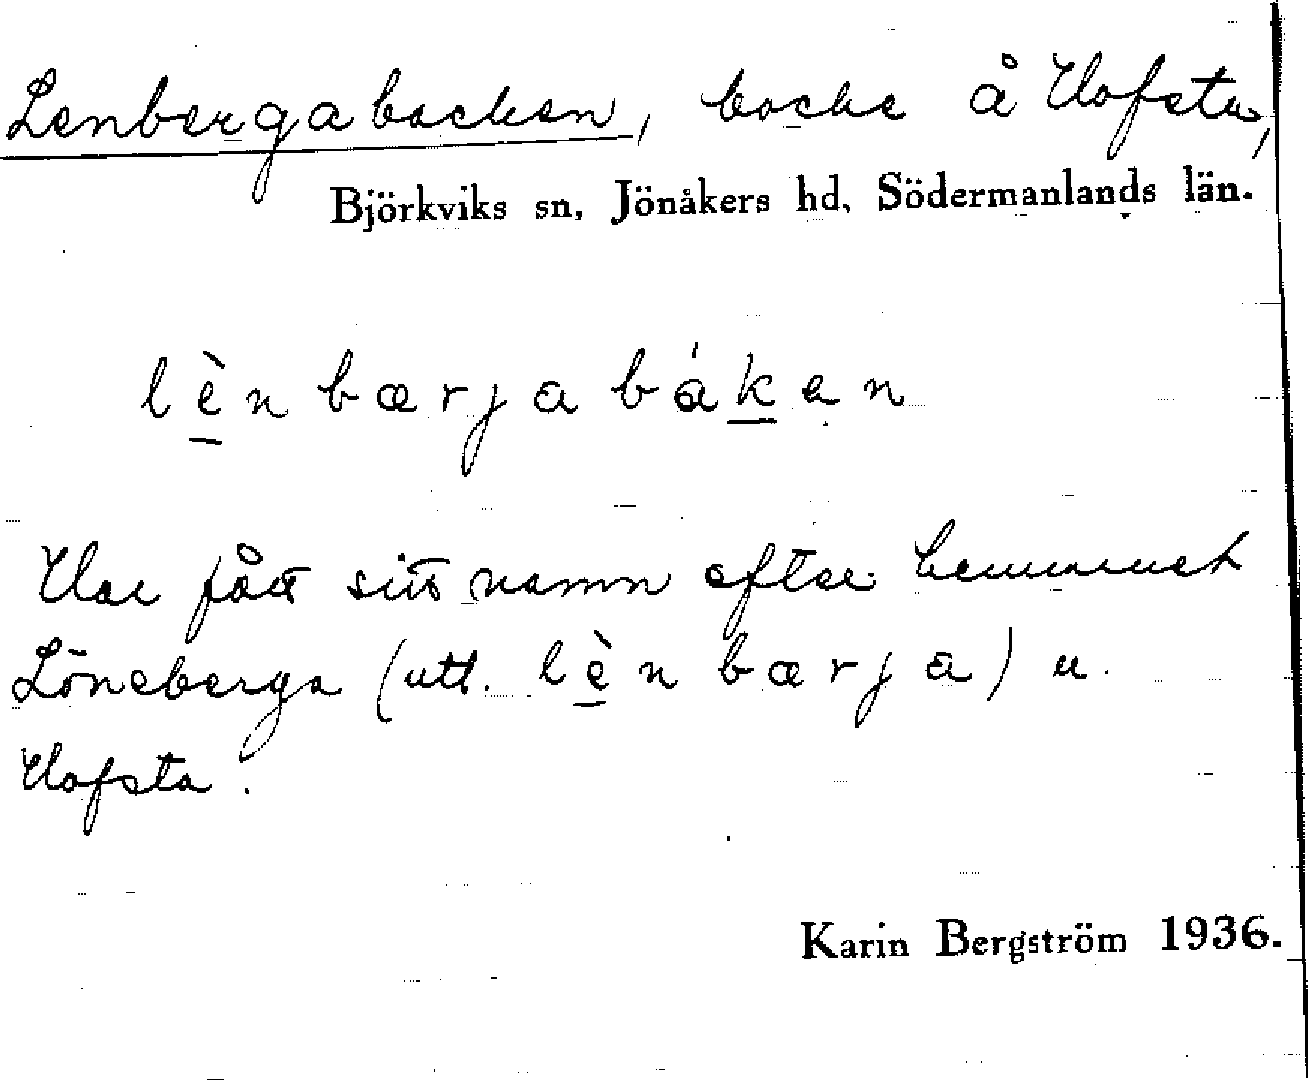 Lenbergabacken, backe å Hofsta,
Björkviks sn, Jönåkers hd, Södermanlands län.
lè̠nbærjabák̠en
Har fått sitt namn efter hemmanet
Löneberga (utt. lè̠nbærja) u.
Hofsta.
Karin Bergström 1936.